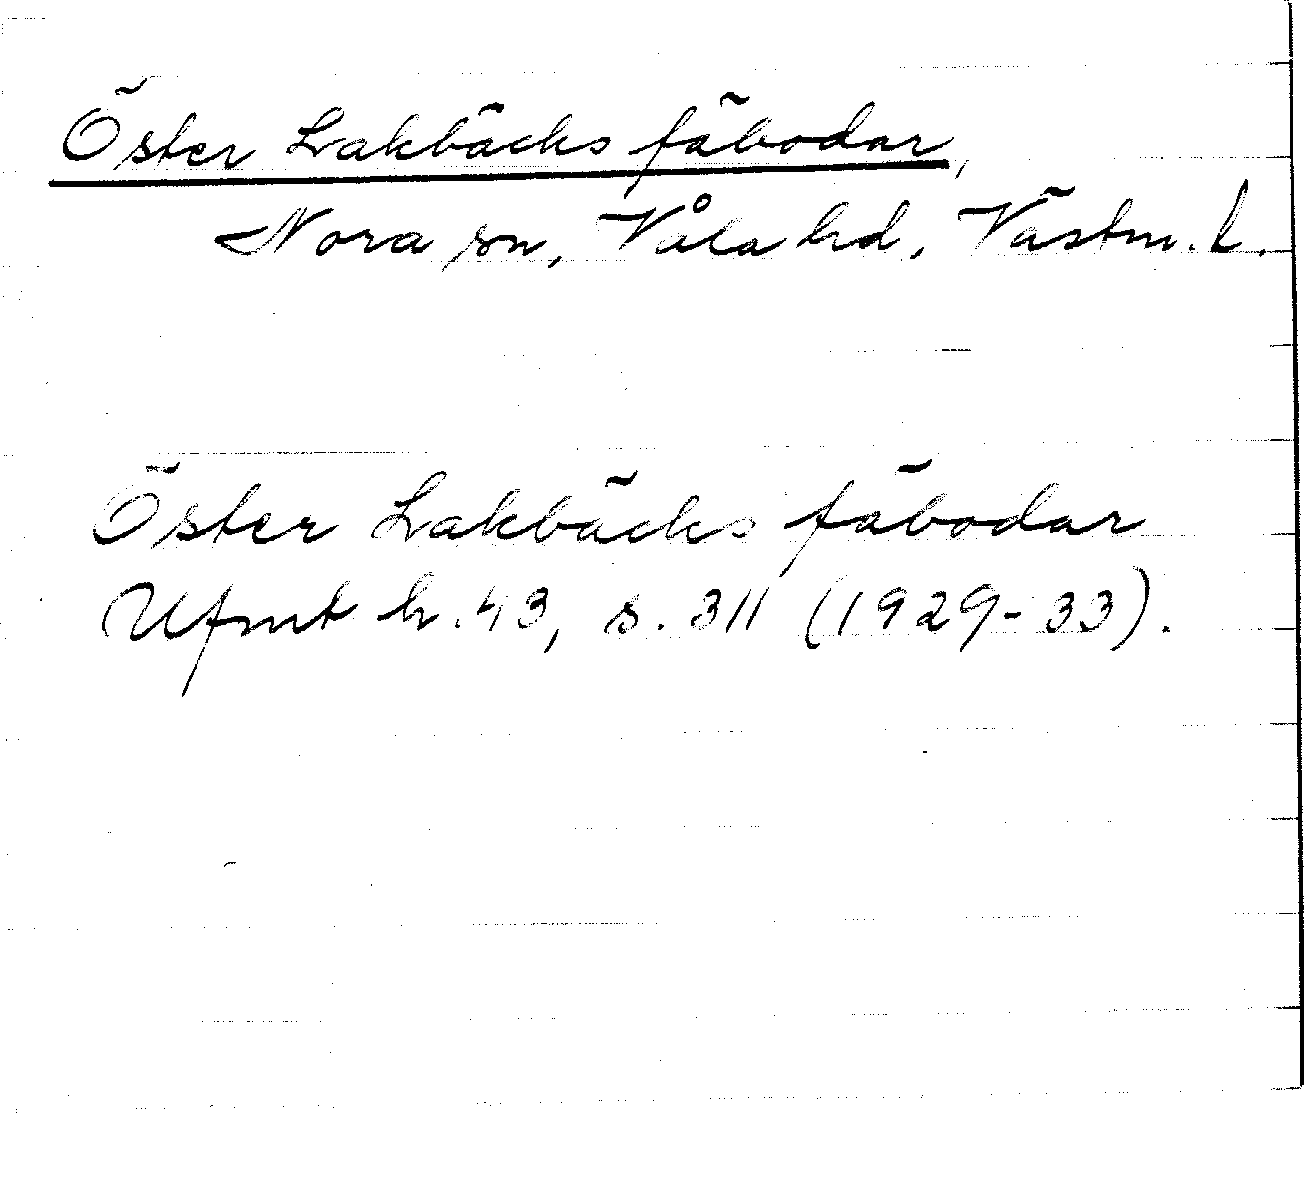 Öster Lakbäcks fäbodar,
Nora sn, Våla hd, Västm. l.
Öster Lakbäcks fäbodar
Ufmt h. 43, s. 311 (1929-33).